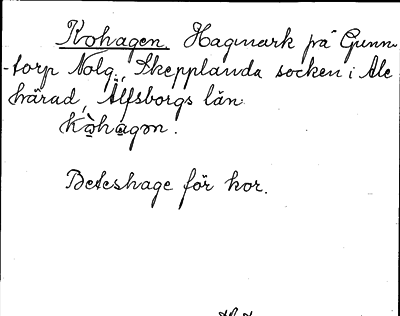 Kohagen. Hagmark på Gunn-
-torp Nolg., Skepplanda socken i Ale
härad, Älfsborgs län.
kò̱ha̱gən.
Beteshage för kor.